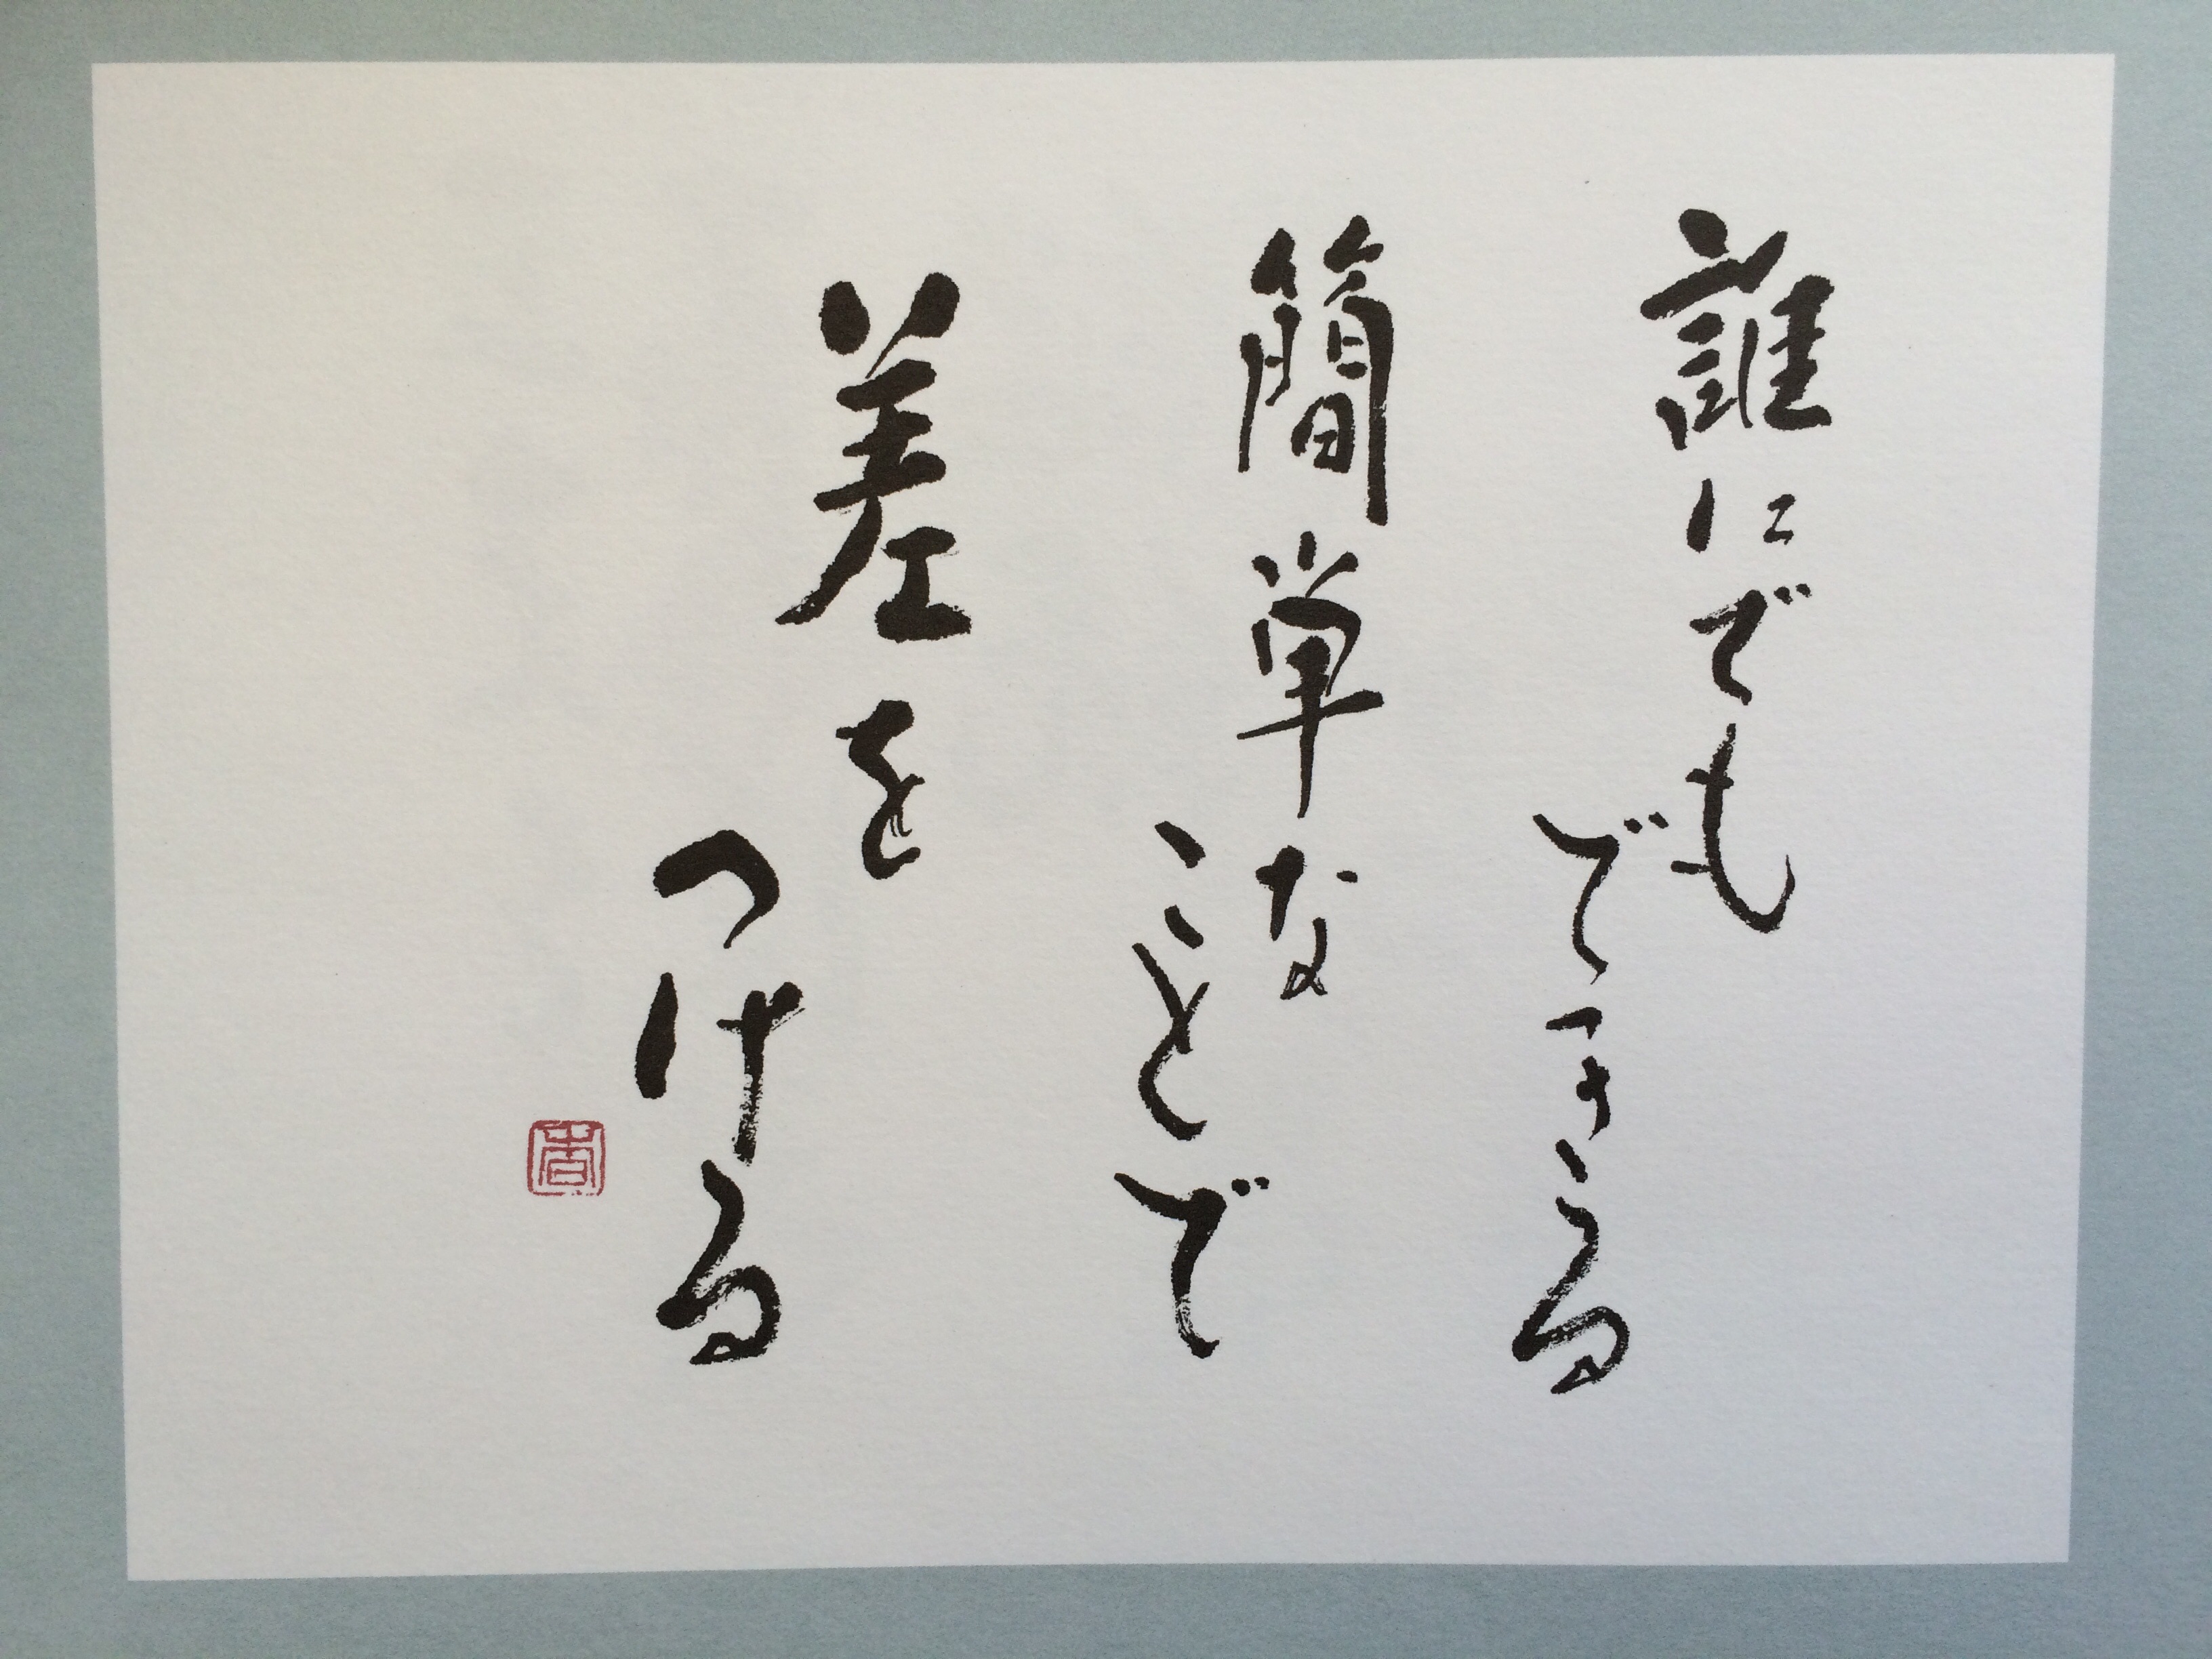 誰にでも
できる
簡単な
ことで
差を
つける